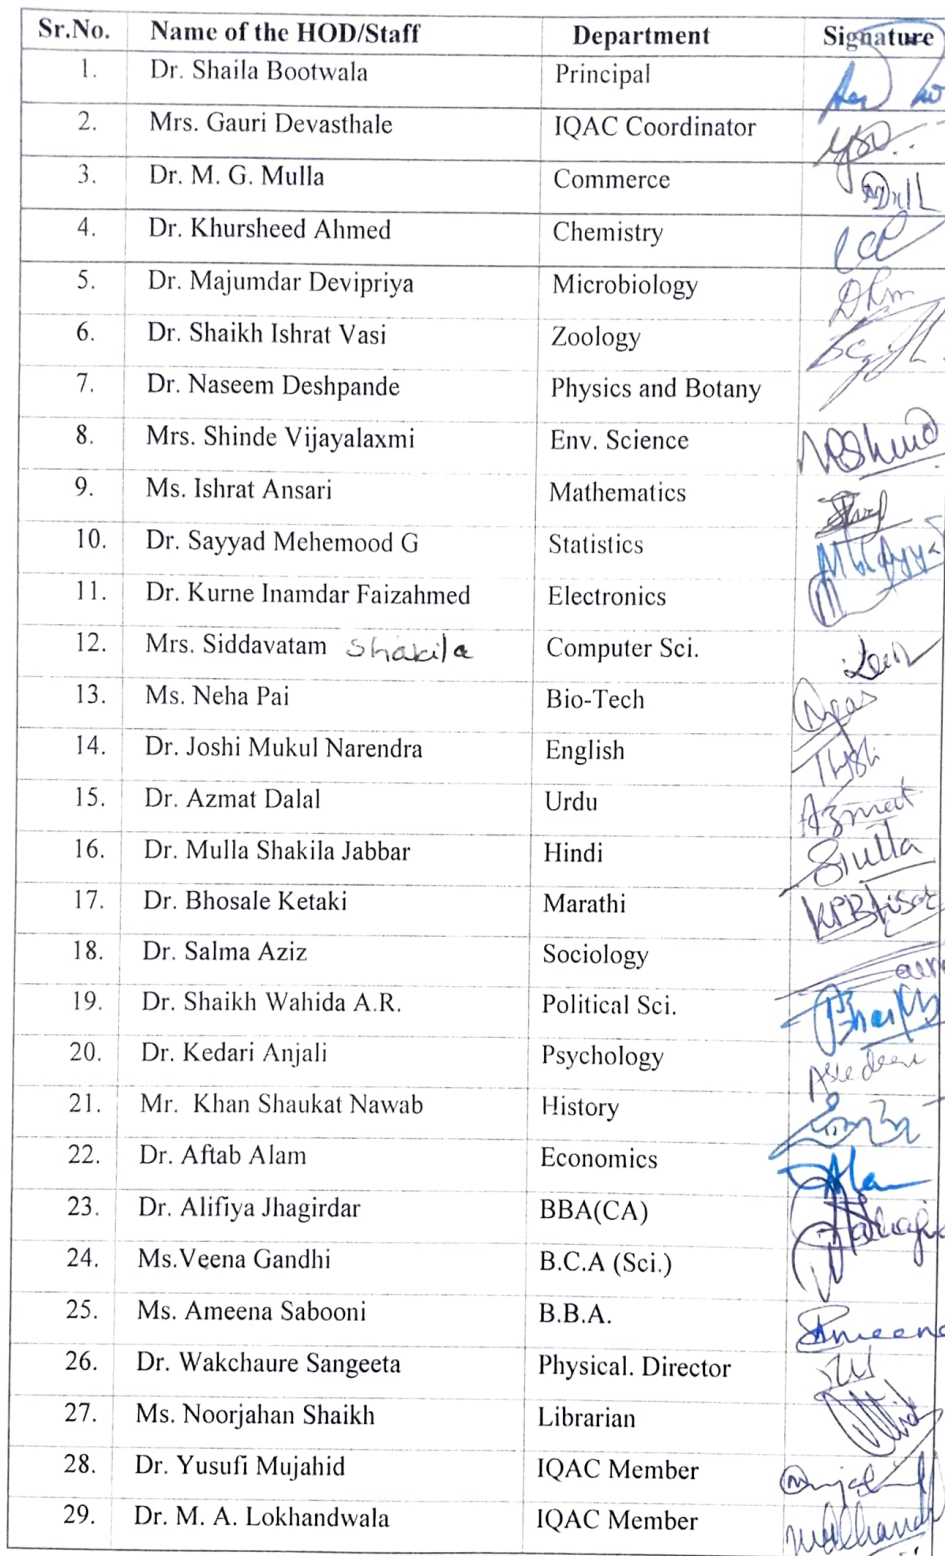 Sr.No. Name of the HOD/Staff Department Signature
1. Dr. Shaila Bootwala Principal
2. Mrs. Gauri Devasthale IQAC Coordinator
3. Dr. M. G. Mulla Commerce
4. Dr. Khursheed Ahmed Chemistry
5. Dr. Majumdar Devipriya Microbiology
6. Dr. Shaikh Ishrat Vasi Zoology
7. Dr. Naseem Deshpande Physics and Botany
8. Mrs. Shinde Vijayalaxmi Env. Science
9. Ms. Ishrat Ansari Mathematics
10. Dr. Sayyad Mehemood G Statistics
11. Dr. Kurne Inamdar Faizahmed Electronics
12. Mrs. Siddavatam Shakila Computer Sci.
13. Ms. Neha Pai Bio-Tech
14. Dr. Joshi Mukul Narendra English
15. Dr. Azmat Dalal Urdu Azmat
16. Dr. Mulla Shakila Jabbar Hindi
17. Dr. Bhosale Ketaki Marathi
18. Dr. Salma Aziz Sociology
19. Dr. Shaikh Wahida A.R. Political Sci.
20. Dr. Kedari Anjali Psychology
21. Mr. Khan Shaukat Nawab History
22. Dr. Aftab Alam Economics
23. Dr. Alifiya Jhagirdar BBA(CA)
24. Ms.Veena Gandhi B.C.A (Sci.)
25. Ms. Ameena Sabooni B.B.A.
26. Dr. Wakchaure Sangeeta Physical. Director
27. Ms. Noorjahan Shaikh Librarian
28. Dr. Yusufi Mujahid IQAC Member
29. Dr. M. A. Lokhandwala IQAC Member